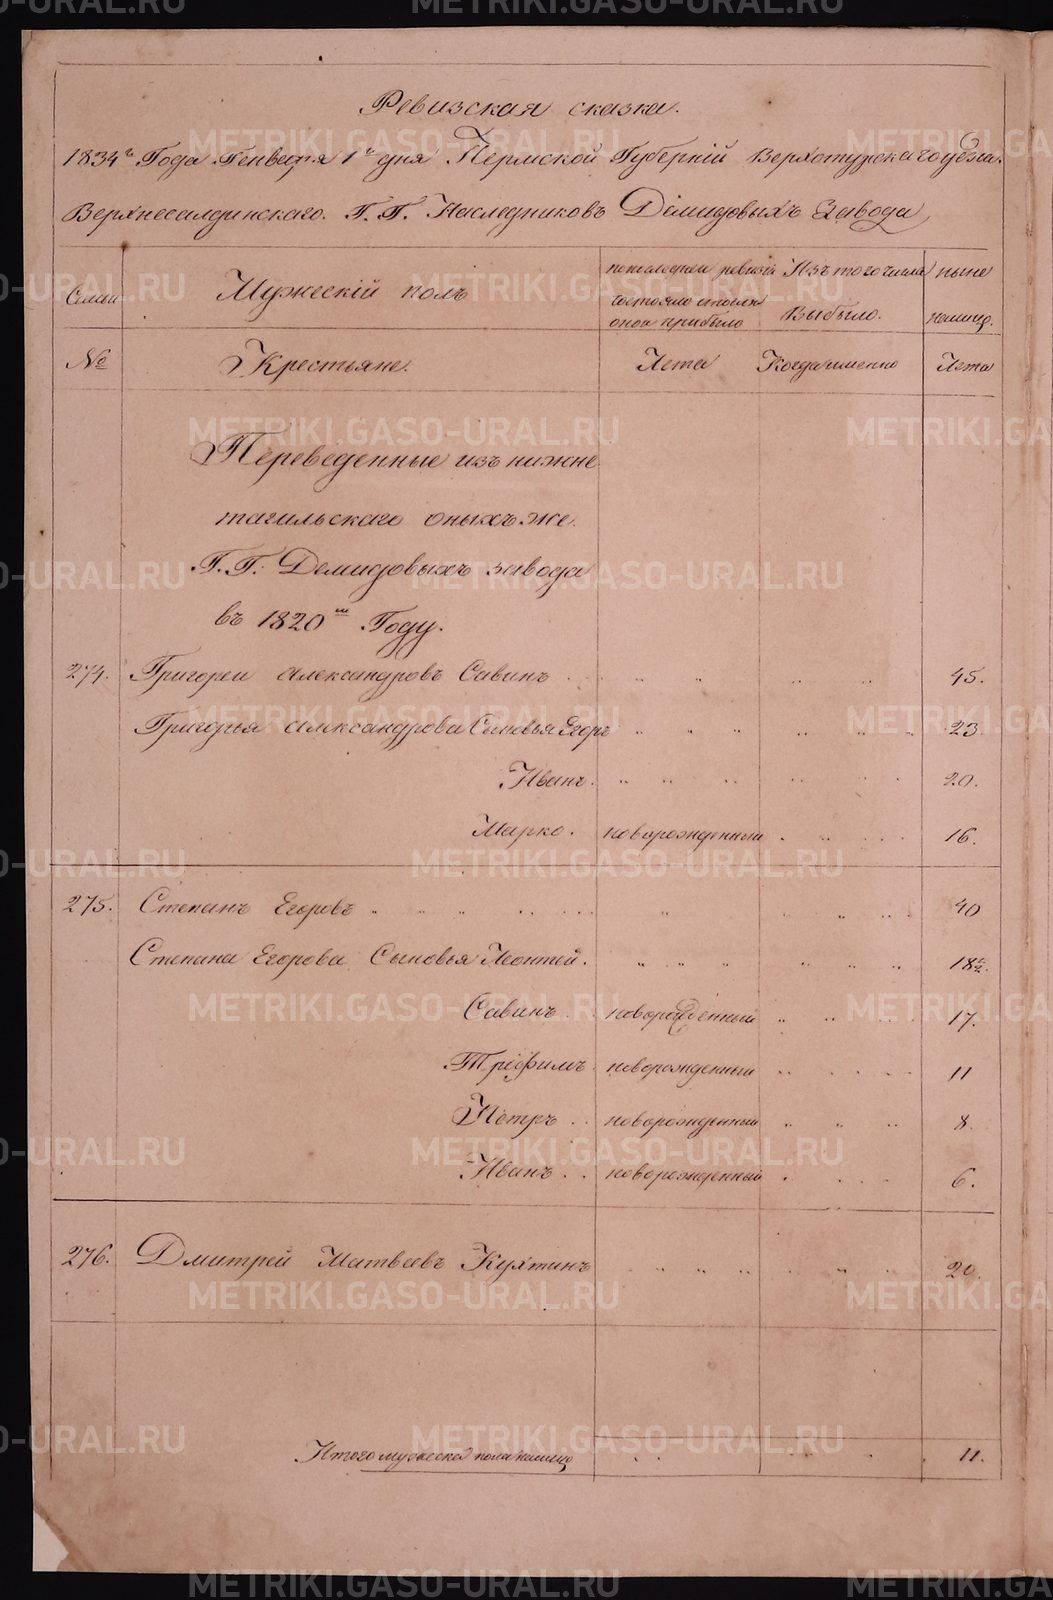 Ревизская сказка.
1834го Года Генваря 1го дня Пермской Губерніи Верхотурскаго уезда.
Верхнесалдинскаго Г.Г. Наследниковъ Демидовыхъ Завода
Семьи Мужескій полъ по последней ревизіи состояло и после оной прибыло Изъ того числа Выбыло. ныне на лицо.
№ Крестьяне. Лета Когда именно Лета
Переведенные изъ нижне
тагильскаго оныхъ же
Г.Г. Демидовыхъ завода
въ 1820м Году.
274. Григореи Александровъ Савинъ 45.
Григорья Александрова Сыновья Егоръ 23
Иванъ. 20.
Марко. новорожденный 16.
275. Степанъ Егоровъ 40
Степана Егорова Сыновья Леонтей. 18½.
Савинъ новорожденный 17.
Трефимъ новорожденный 11
Петръ новорожденный 8.
Иванъ новорожденный 6.
276. Дмитрей Матвеевъ Кухтинъ 20.
Итого мужеска пола налицо 11.
METRIKI.GASO-URAL.RU